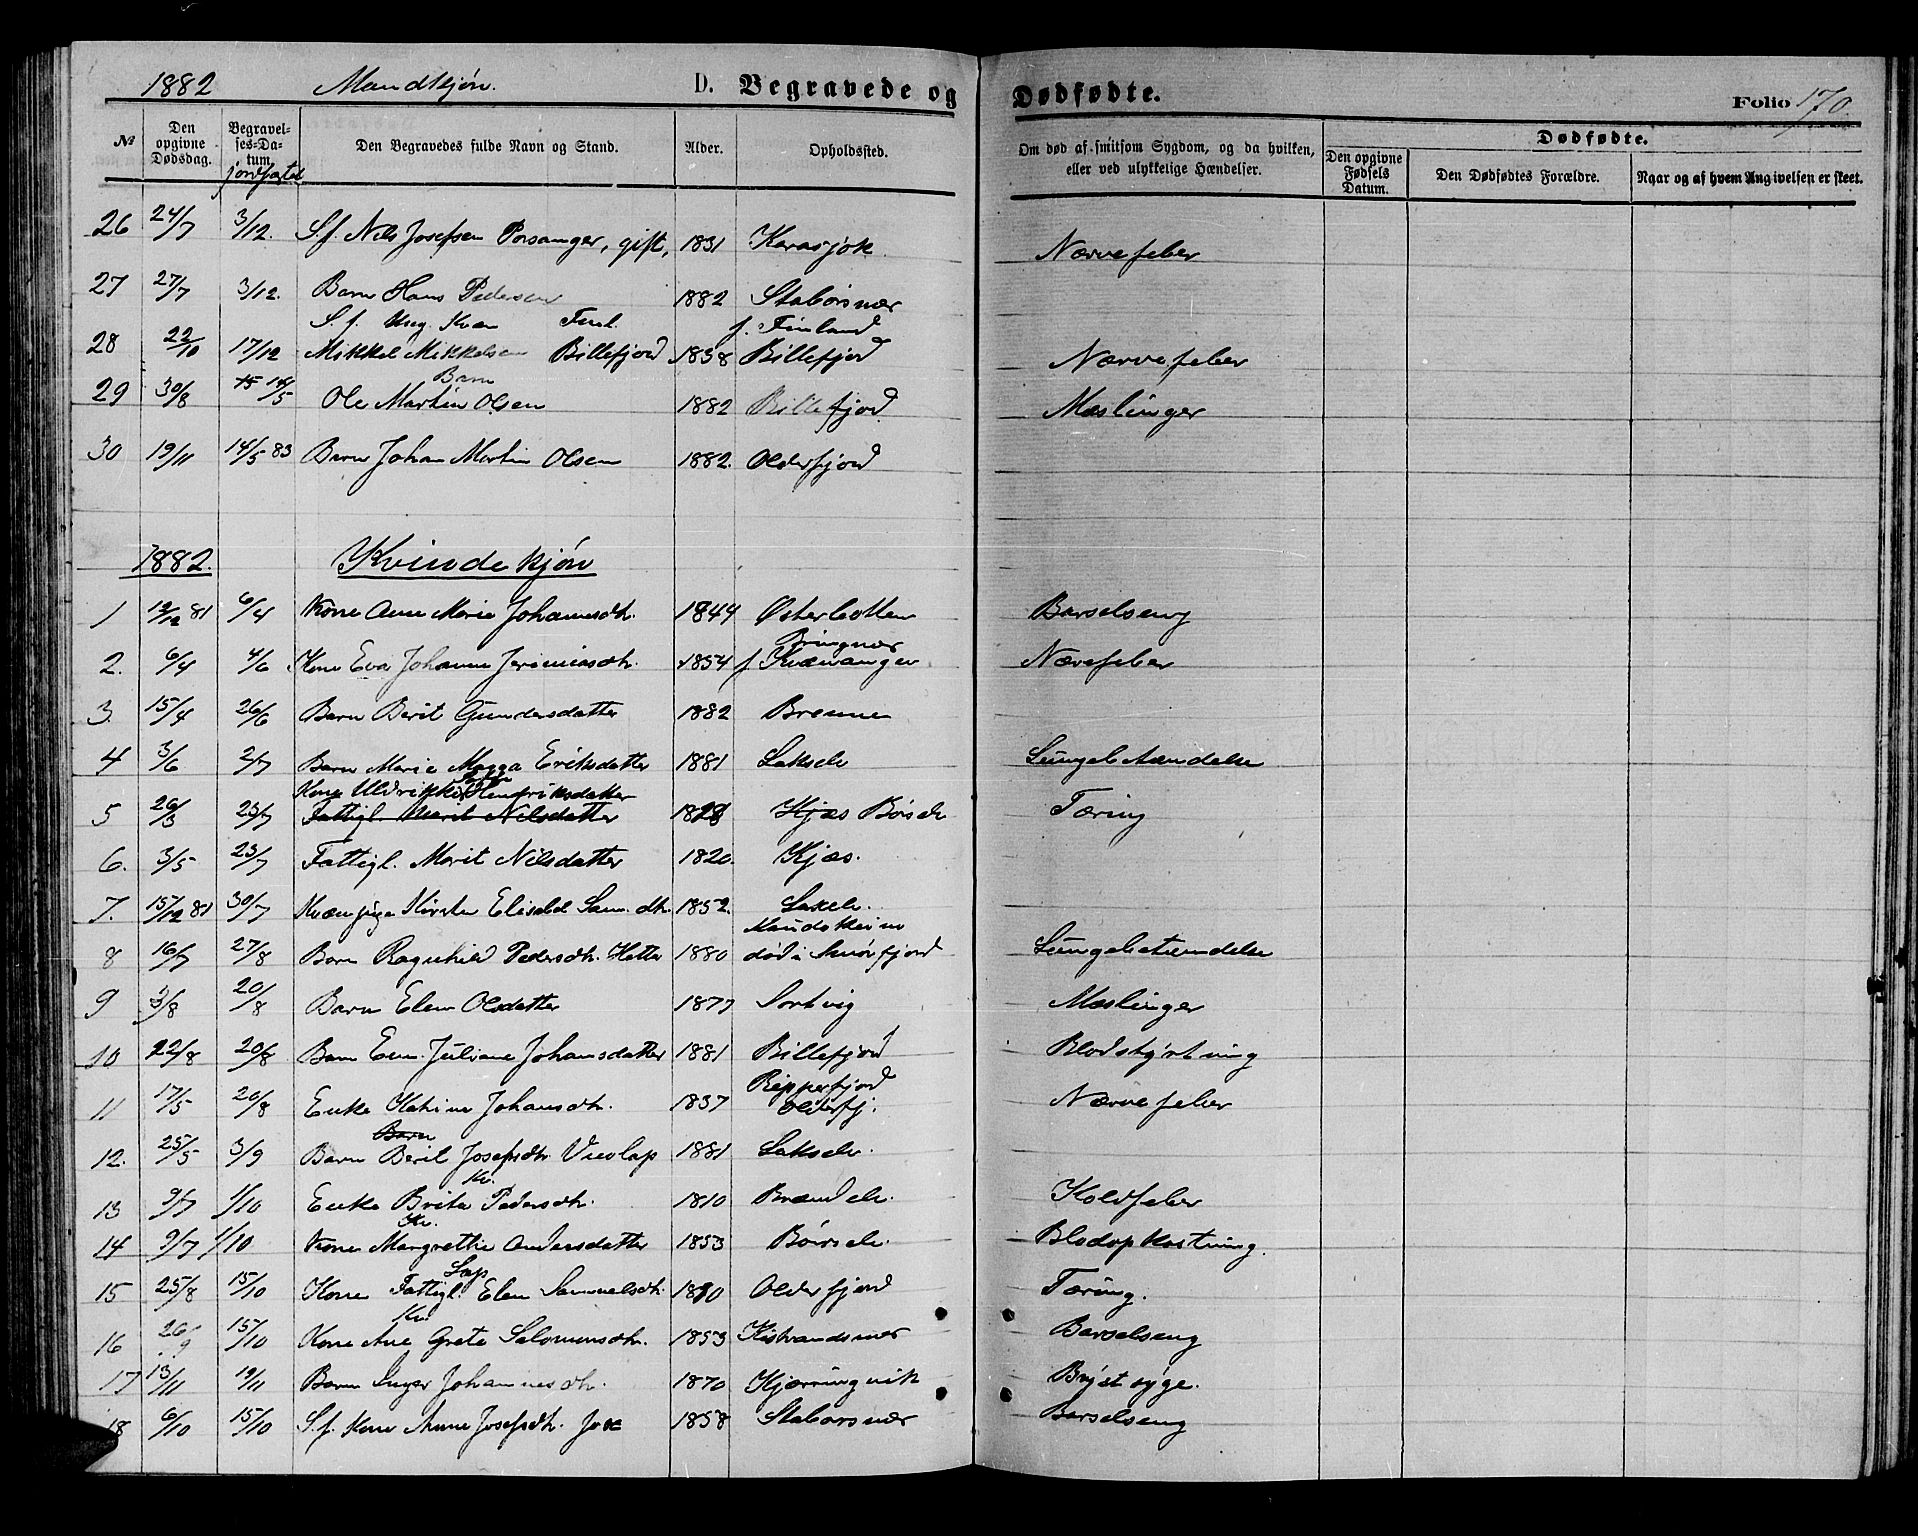 1882 Mandkjøn. D. Begravede og Dødfødte. Folio 170.
№ Den opgivne Dødsdag. Begravelses-Datum. jordfæstet Den Begravedes fulde Navn og Stand. Alder. Opholdssted. Om død af smitsom Sygdom, og da hvilken, eller ved ulykkelige Hændelser. Dødfødte. Den opgivne Fødsels Datum. Den Dødfødtes Forældre. Naar og af hvem Angivelsen er skeet.
26 24/7 3/12. S.f. Nils Josefsen Porsanger, gift, 1831 Karasjok Nærvefeber
27 27/7 3/12. Barn Hans Pedersen 1882 Stabursnær
S. f. Ung. Kvæn Finl. f. Finland
28 22/10 17/12 Mikkel Mikkelsen Billefjord 1838 Billefjord Nærvefeber
29 30/8 14/5 Ole Martin Olsen Barn 1882 Billefjord Mæslinger
30 19/11 14/5 83 Barn Johan Martin Olsen 1882. Olderfjord
1882. Kvindekjøn
1 12/12 81 6/4 Kone Ane Marie Johannesdtr. 1844 Østerbotten Barselseng
2. 6/4 4/6 Kone Eva Johanne Jerimiasdtr. 1854 Bringnær f. Kvænangen Nærvefeber
3. 15/4 26/6 Barn Berit Gundersdatter 1882 Brenne
4 3/6 2/7 Barn Marie Magga Eriksdatter 1881 Lakselv Lungebetændelse
Kone Uldrikke Hendriksdatter
5 26/3 23/7 Fattigl. Marit Nilsdatter 1828 Kjæs Børselv Tæring
6. 3/5 23/7 Fattigl. Marit Nilsdatter 1820. Kjæs.
7. 15/12 81 30/7 Kvænpige Kirsten Elisabet Sam. dtr. 1852. Lakselv.
8 16/7 27/8 Barn Ragnhild Pedersdtr. Hætta 1880 Kautokeino død i Smørfjord Lungebetændelse
9 3/8 20/8 Barn Elen Olsdatter 1877 Sortvig Mæslinger
10 22/8 20/8 Barn Eva Juliane Johansdatter 1881 Billefjord Blodstyrtning
11 17/5 20/8 Enke Katrine Johansdtr. 1837 Repperfjord Olderfj. Nærvefeber
Barn
12. 25/5 3/9 Barn Berit Josefsdtr. Vuolap 1881 Lakselv.
13 9/7 1/10 Enke Brita Pedersdtr. Kv. 1810 Brændelv. Koldfeber
14 9/7 1/10 Kone Kv. Margrethe Andersdatter 1853 Børselv. Blodopkastning.
15 25/8 15/10 Kone Fattigl. Lap Elen Samuelsdtr. 1830 Olderfjord Tæring.
16 26/9 15/10 Kone Kv. Ane Grete Salomonsdtr. 1853 Kistrandsnær Barselseng
17 13/11 19/11 Barn Inger Johannesdtr. 1870 Kjærringvik Brystsyge.
18 6/10 15/10 S.f. Kone Anne Josefsdtr. Jox 1858 Stabursnær Barselseng